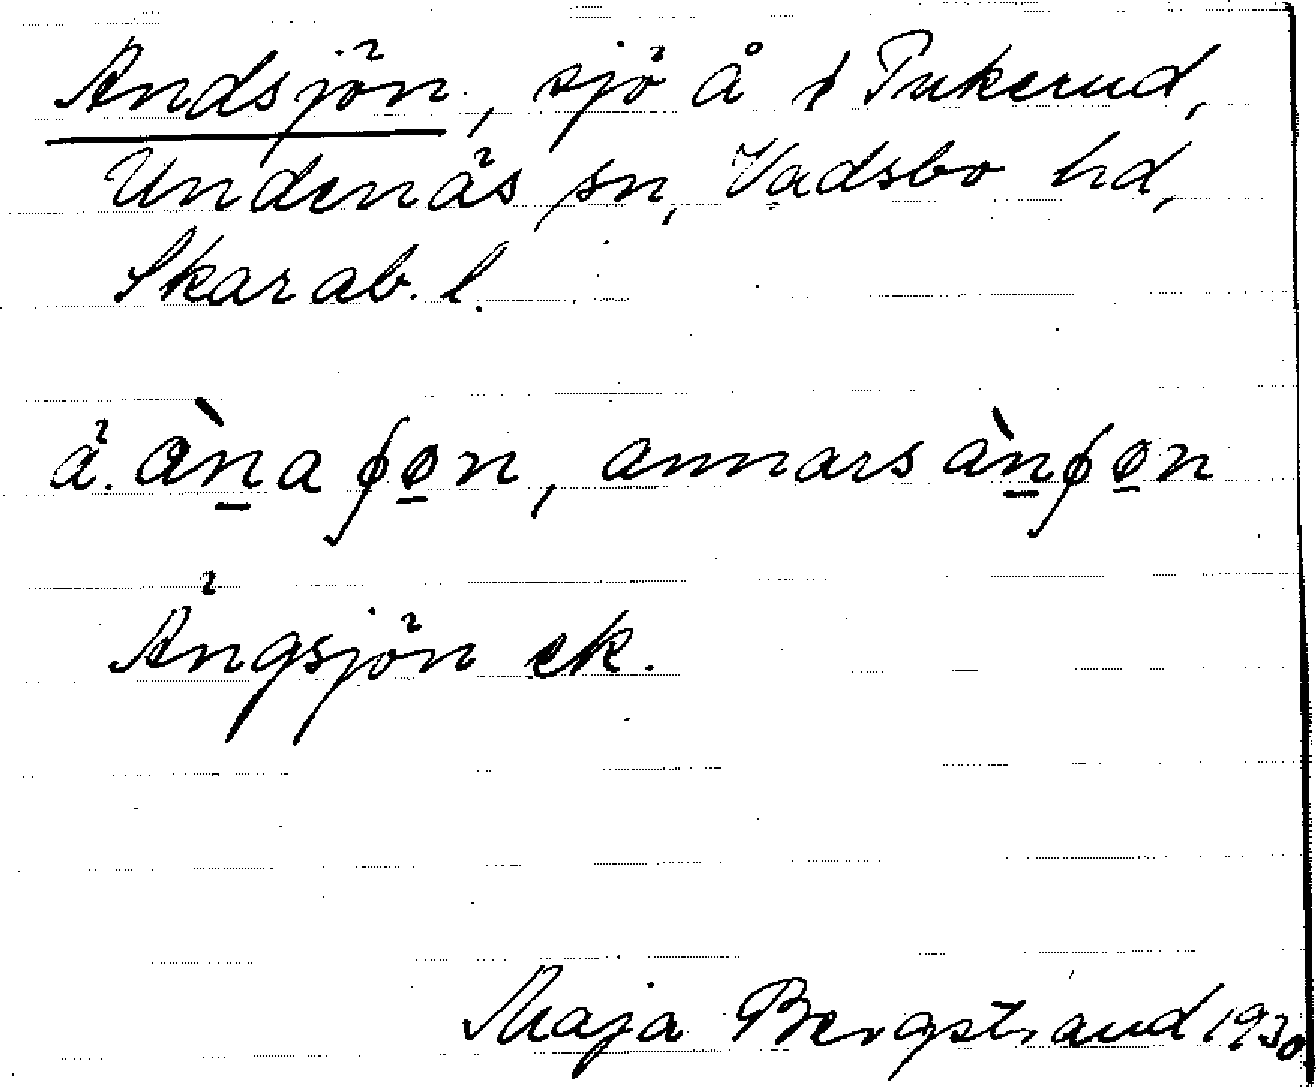 Andsjön, sjö å f Pukerud,
Undenäs sn, Vadsbo hd,
Skarab. l.
ä. ànaʃøn, annars ànʃøn
Ängsjön ek.
Maja Bergstrand 1930